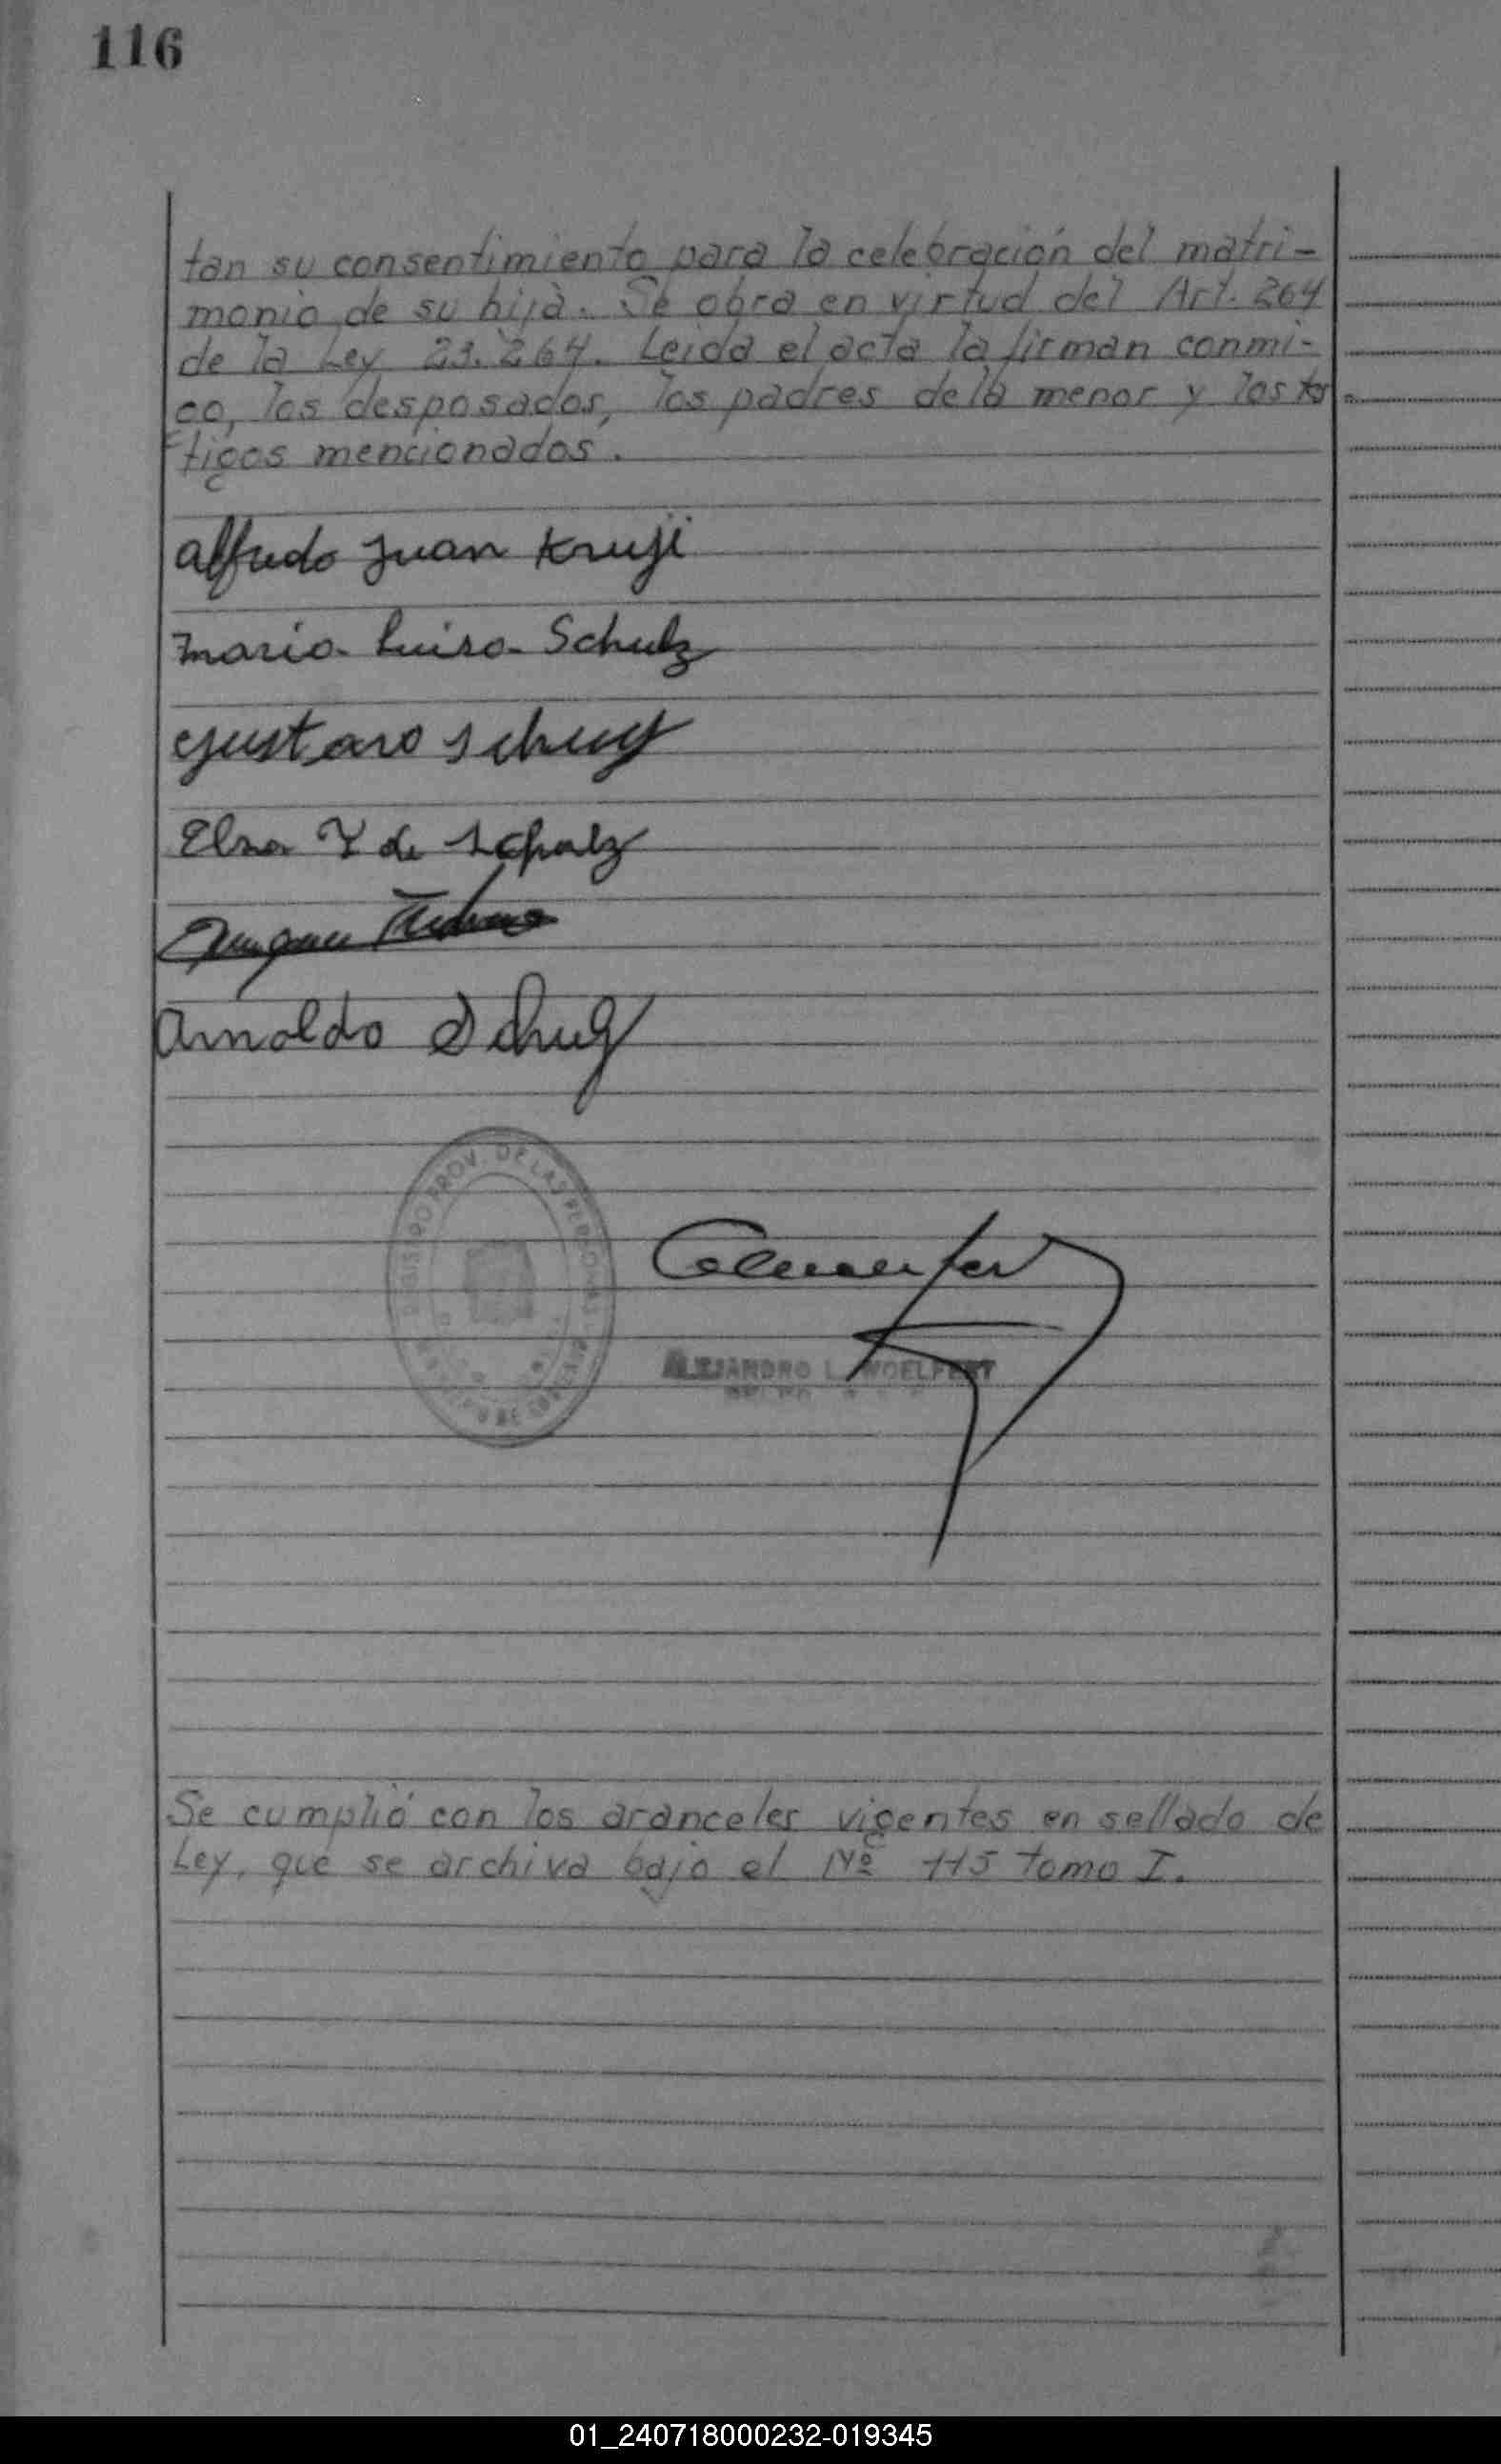 116
tan su consentimiento para la celebración del matri-
monio de su hija. Se obra en virtud del Art. 264
de la Ley 23.264. Leida el acta la firman conmi-
go, los desposados, los padres de la menor y los tes
tigos mencionados.
Alfredo Juan Kruji
Maria Luisa Schulz
Gustavo
Elsa Y de Schulz
Arnoldo Schug
REGISTRO PROV. DE LAS PERSONAS
ALEJANDRO L. WOELFERT
Se cumplió con los aranceles vigentes en sellado de
Ley, que se archiva bajo el Nº 115 tomo I.
01_240718000232-019345